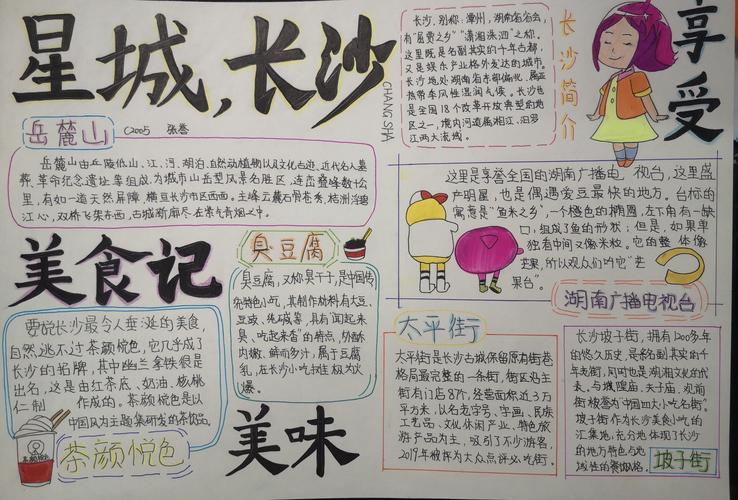 星城,长沙
CHANG SHA
享受
长沙简介
长沙,别称:潭州,湖南省省会,
有“屈贾之乡”“潇湘洙泗”之称。
这里既是名副其实的千年古都,
又是娱乐产业格外发达的城市。
长沙地处湖南省东部偏北,属亚
热带季风性湿润气候。长沙也
是全国18个改革开放典型的地
区之一,境内河道属湘江、汨罗
江两大流域。
岳麓山
C2005 张誉
岳麓山由丘陵低山、江、河、湖泊、自然动植物以及文化古迹、近代名人墓
葬、革命纪念遗址等组成,为城市山岳型风景名胜区,连峦叠峰数十公
里,有如一道天然屏障,横亘长沙市区西面。主峰云麓石骨苍秀,桔洲浮碧
江心,双桥飞架东西,古城新廓尽在紫气青烟之中。
这里是享誉全国的湖南广播电视台,这里盛
产明星,也是偶遇爱豆最快的地方。台标的
寓意是“鱼米之乡”,一个橙色的椭圆,左下角有一缺
口,组成了鱼的形状;但是,如果单
独看中间又像米粒。它的整体像
芒果,所以观众们叫它“芒
果台”。
湖南广播电视台
美食记
要说长沙最令人垂涎的美食,
自然逃不过茶颜悦色,它几乎成了
长沙的招牌,其中幽兰拿铁很是
出名,这是由红茶底、奶油、核桃
仁制作成的。茶颜悦色是以
中国风为主题集研发的茶饮品。
茶颜悦色
臭豆腐
臭豆腐,又称臭干子,是中国传
统特色小吃,其制作材料有大豆、
豆豉、纯碱等,具有“闻起来
臭、吃起来香”的特点,外酥
内嫩、鲜而多汁,属于豆腐
乳,在长沙小吃街里极为火
爆。
美味
太平街
太平街是长沙古城保留原有街巷
格局最完整的一条街,街区内主
街有门店87个,经营面积近3万
平方米,以名老字号、字画、民族
工艺品、文化休闲产业、特色旅
游产品为主,吸引了不少游客,
2019年被评为大众点评必吃街。
长沙坡子街,拥有1200多年
的悠久历史,是名副其实的千
年老街,同时也是湖湘文化的代
表。与城隍庙、夫子庙、观前
街被誉为“中国四大小吃名街”。
坡子街作为长沙美食小吃的
汇集地,充分地体现了长沙
的地方特色与地
域性的餐饮风格。
坡子街